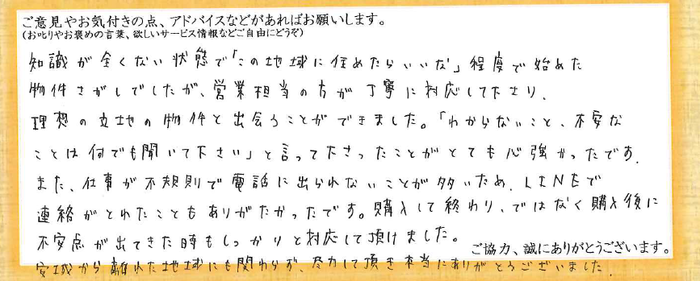 ご意見やお気付きの点、アドバイスなどがあればお願いします。
(お叱りやお褒めの言葉、欲しいサービス情報などご自由にどうぞ)
知識が全くない状態で「この地域に住めたらいいな」程度で始めた
物件さがしでしたが、営業担当の方が丁寧に対応して下さり、
理想の立地の物件と出会うことができました。「わからないこと、不安な
ことは何でも聞いて下さい」と言って下さったことがとても心強かったです。
また、仕事が不規則で電話に出られないことが多いため、LINEで
連絡がとれたこともありがたかったです。購入して終わり、ではなく購入後に
不安点が出てきた時もしっかりと対応して頂けました。
ご協力、誠にありがとうございます。
宮城から離れた地域にも関わらず、尽力して頂き本当にありがとうございました。